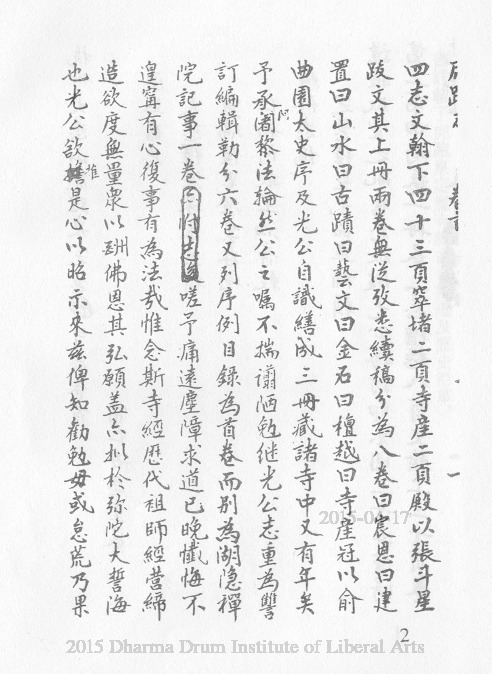 四志文翰下四十三頁窣堵二頁寺產二頁殿以張斗星
跋文其上冊兩卷無從攷悉續稿分為八卷曰宸恩曰建
置曰山水曰古蹟曰藝文曰金石曰檀越曰寺產冠以俞
曲園太史序及光公自識繕成三冊藏諸寺中又有年矣
予承阿闍黎法輪然公之囑不揣譾陋勉继光公志重為讐
訂編輯勒分六卷又列序例目錄為首卷而別為湖隐禪
院記事一卷附志後嗟予痛遠塵障求道已晚懺悔不
遑寗有心復事有為法哉惟念斯寺經歷代祖師經营締
造欲度無量衆以酬佛恩其弘願盖亦拟於弥陀大誓海
也光公欲推是心以昭示來茲俾知勸勉毋或怠荒乃果
2015-04-17
2
2015 Dharma Drum Institute of Liberal Arts